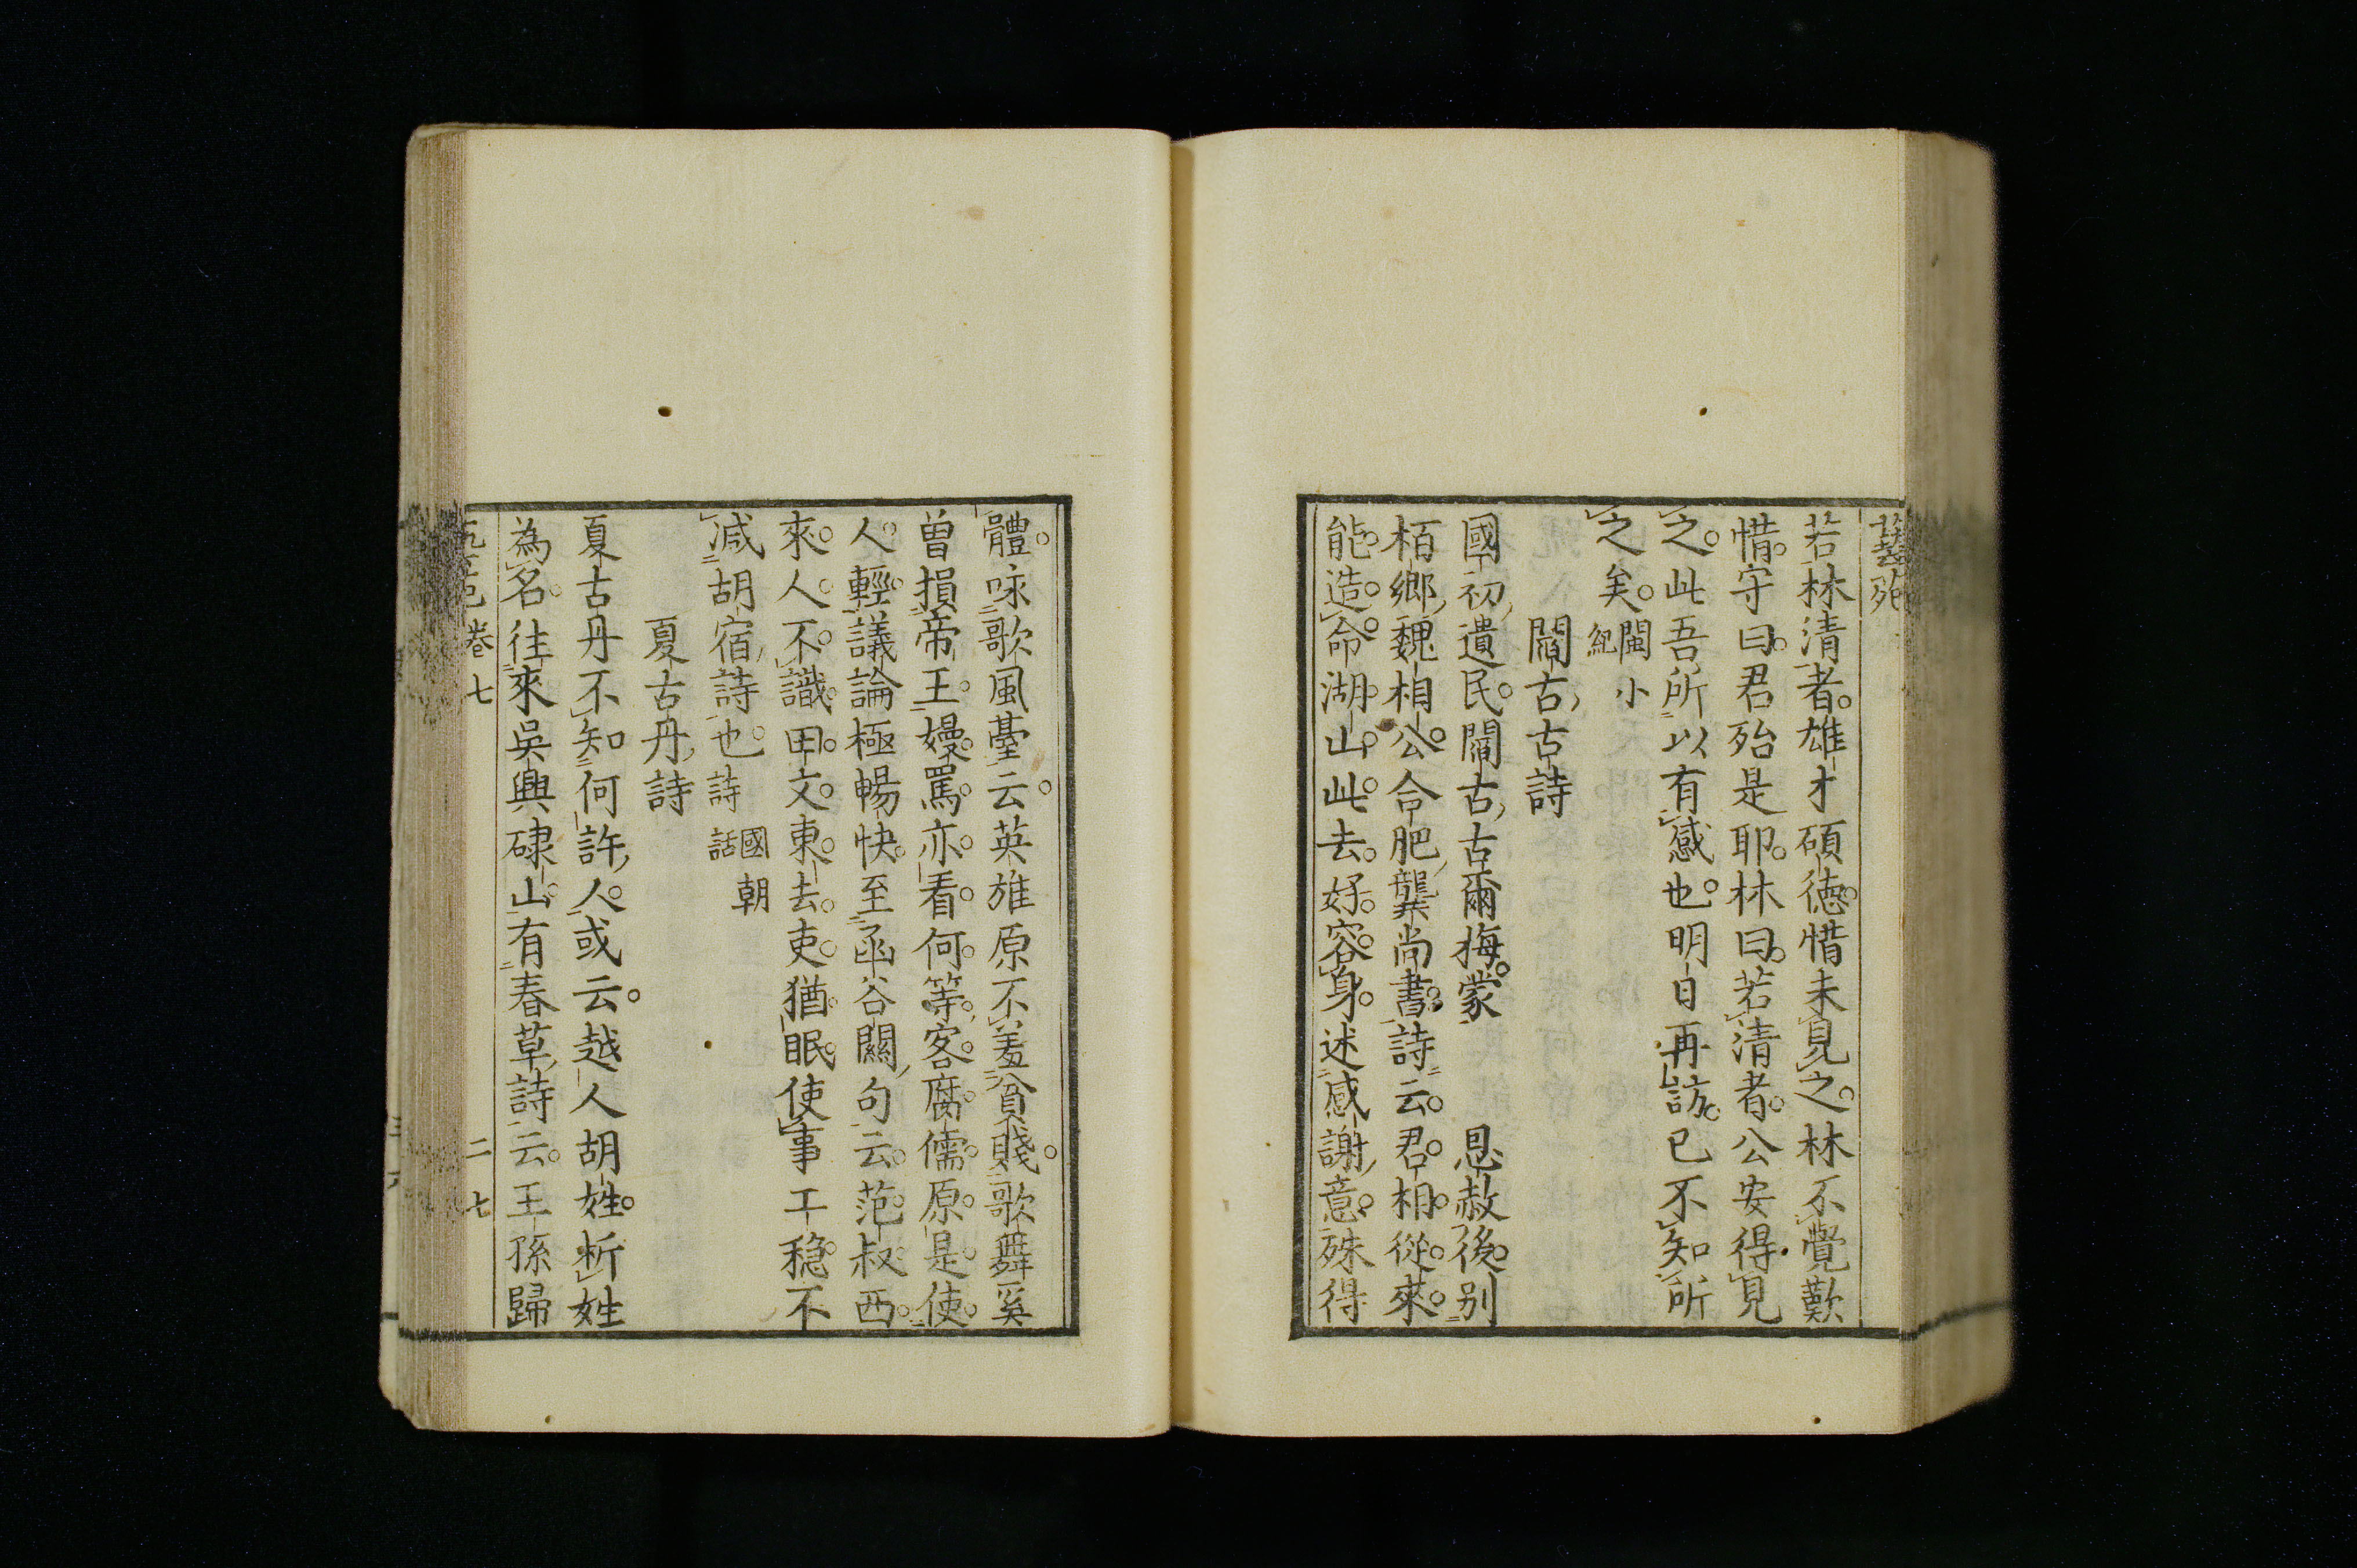 藝苑
若林清者雄才碩德惜未見之林不覺歎
惜守曰君殆是耶林曰若清者公安得見
之此吾所以有感也明日再訪已不知所
之矣閩小紀
閻古古詩
國初遺民閻古古爾梅蒙　恩赦後別
栢鄉魏相公合肥龔尚書詩云君相從來
能造命湖山此去好容身述感謝意殊得
體咏歌風臺云英雄原不羞貧賤歌舞奚
曾損帝王嫚罵亦看何等客腐儒原是使
人輕議論極暢快至函谷關句云范叔西
來人不識田文東去吏猶眠使事工穩不
減胡宿詩也詩國朝詩話
夏古丹詩
夏古丹不知何許人或云越人胡姓析姓
為名往來吳興𥓓山有春草詩云王孫歸
卷七
二七